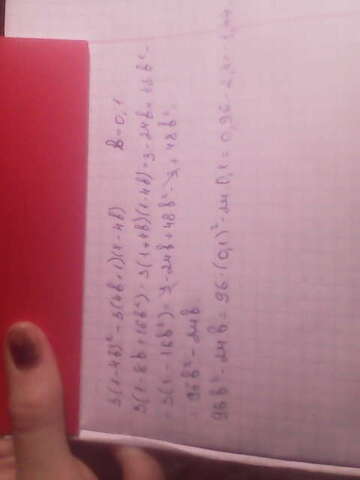 3(1-4b)²-3(4b+1)(1-4b) b=0,1
3(1-8b+16b²)-3(1+4b)(1-4b)=3-24b+48b²-
-3(1-16b²)=3-24b+48b²-3+48b²=
=96b²-24b
96b²-24b=96·(0,1)²-24·0,1=0,96-2,4=-1,44